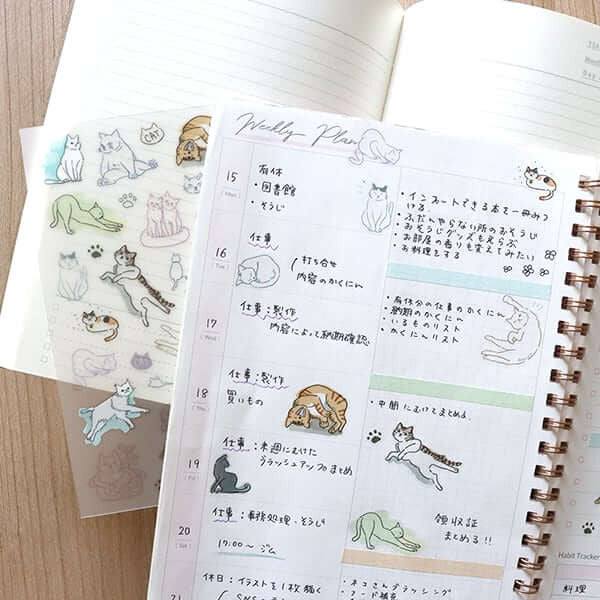 CAT
Weekly Plan
15
(Mon)
有休
・図書館
・そうじ
・インプットできる本を一冊みつ
ける
・ふだんやらない所のおそうじ
・おそうじグッズもえらぶ
・お部屋の香りも変えてみたい
・お料理とする
仕事
16
(Tue)
打ち合せ
内容のかくにん
17
(Wed)
仕事:製作
内容によって納期確認
・有休分の仕事のかくにん
・納期のかくにん
・いるものリスト
・かくにんリスト
18
(Thu)
仕事:製作
買いもの
・中間にむけてまとめる.
19
(Fri)
仕事:来週にむけた
ブラッシュアップまとめ
20
(Sat)
仕事:事務処理・そうじ
17:00〜 ジム
領収証
まとめる!!
21
休日:イラストを1枚描く
・ネコさんブラッシング
Habit Tracker
料理
DAY